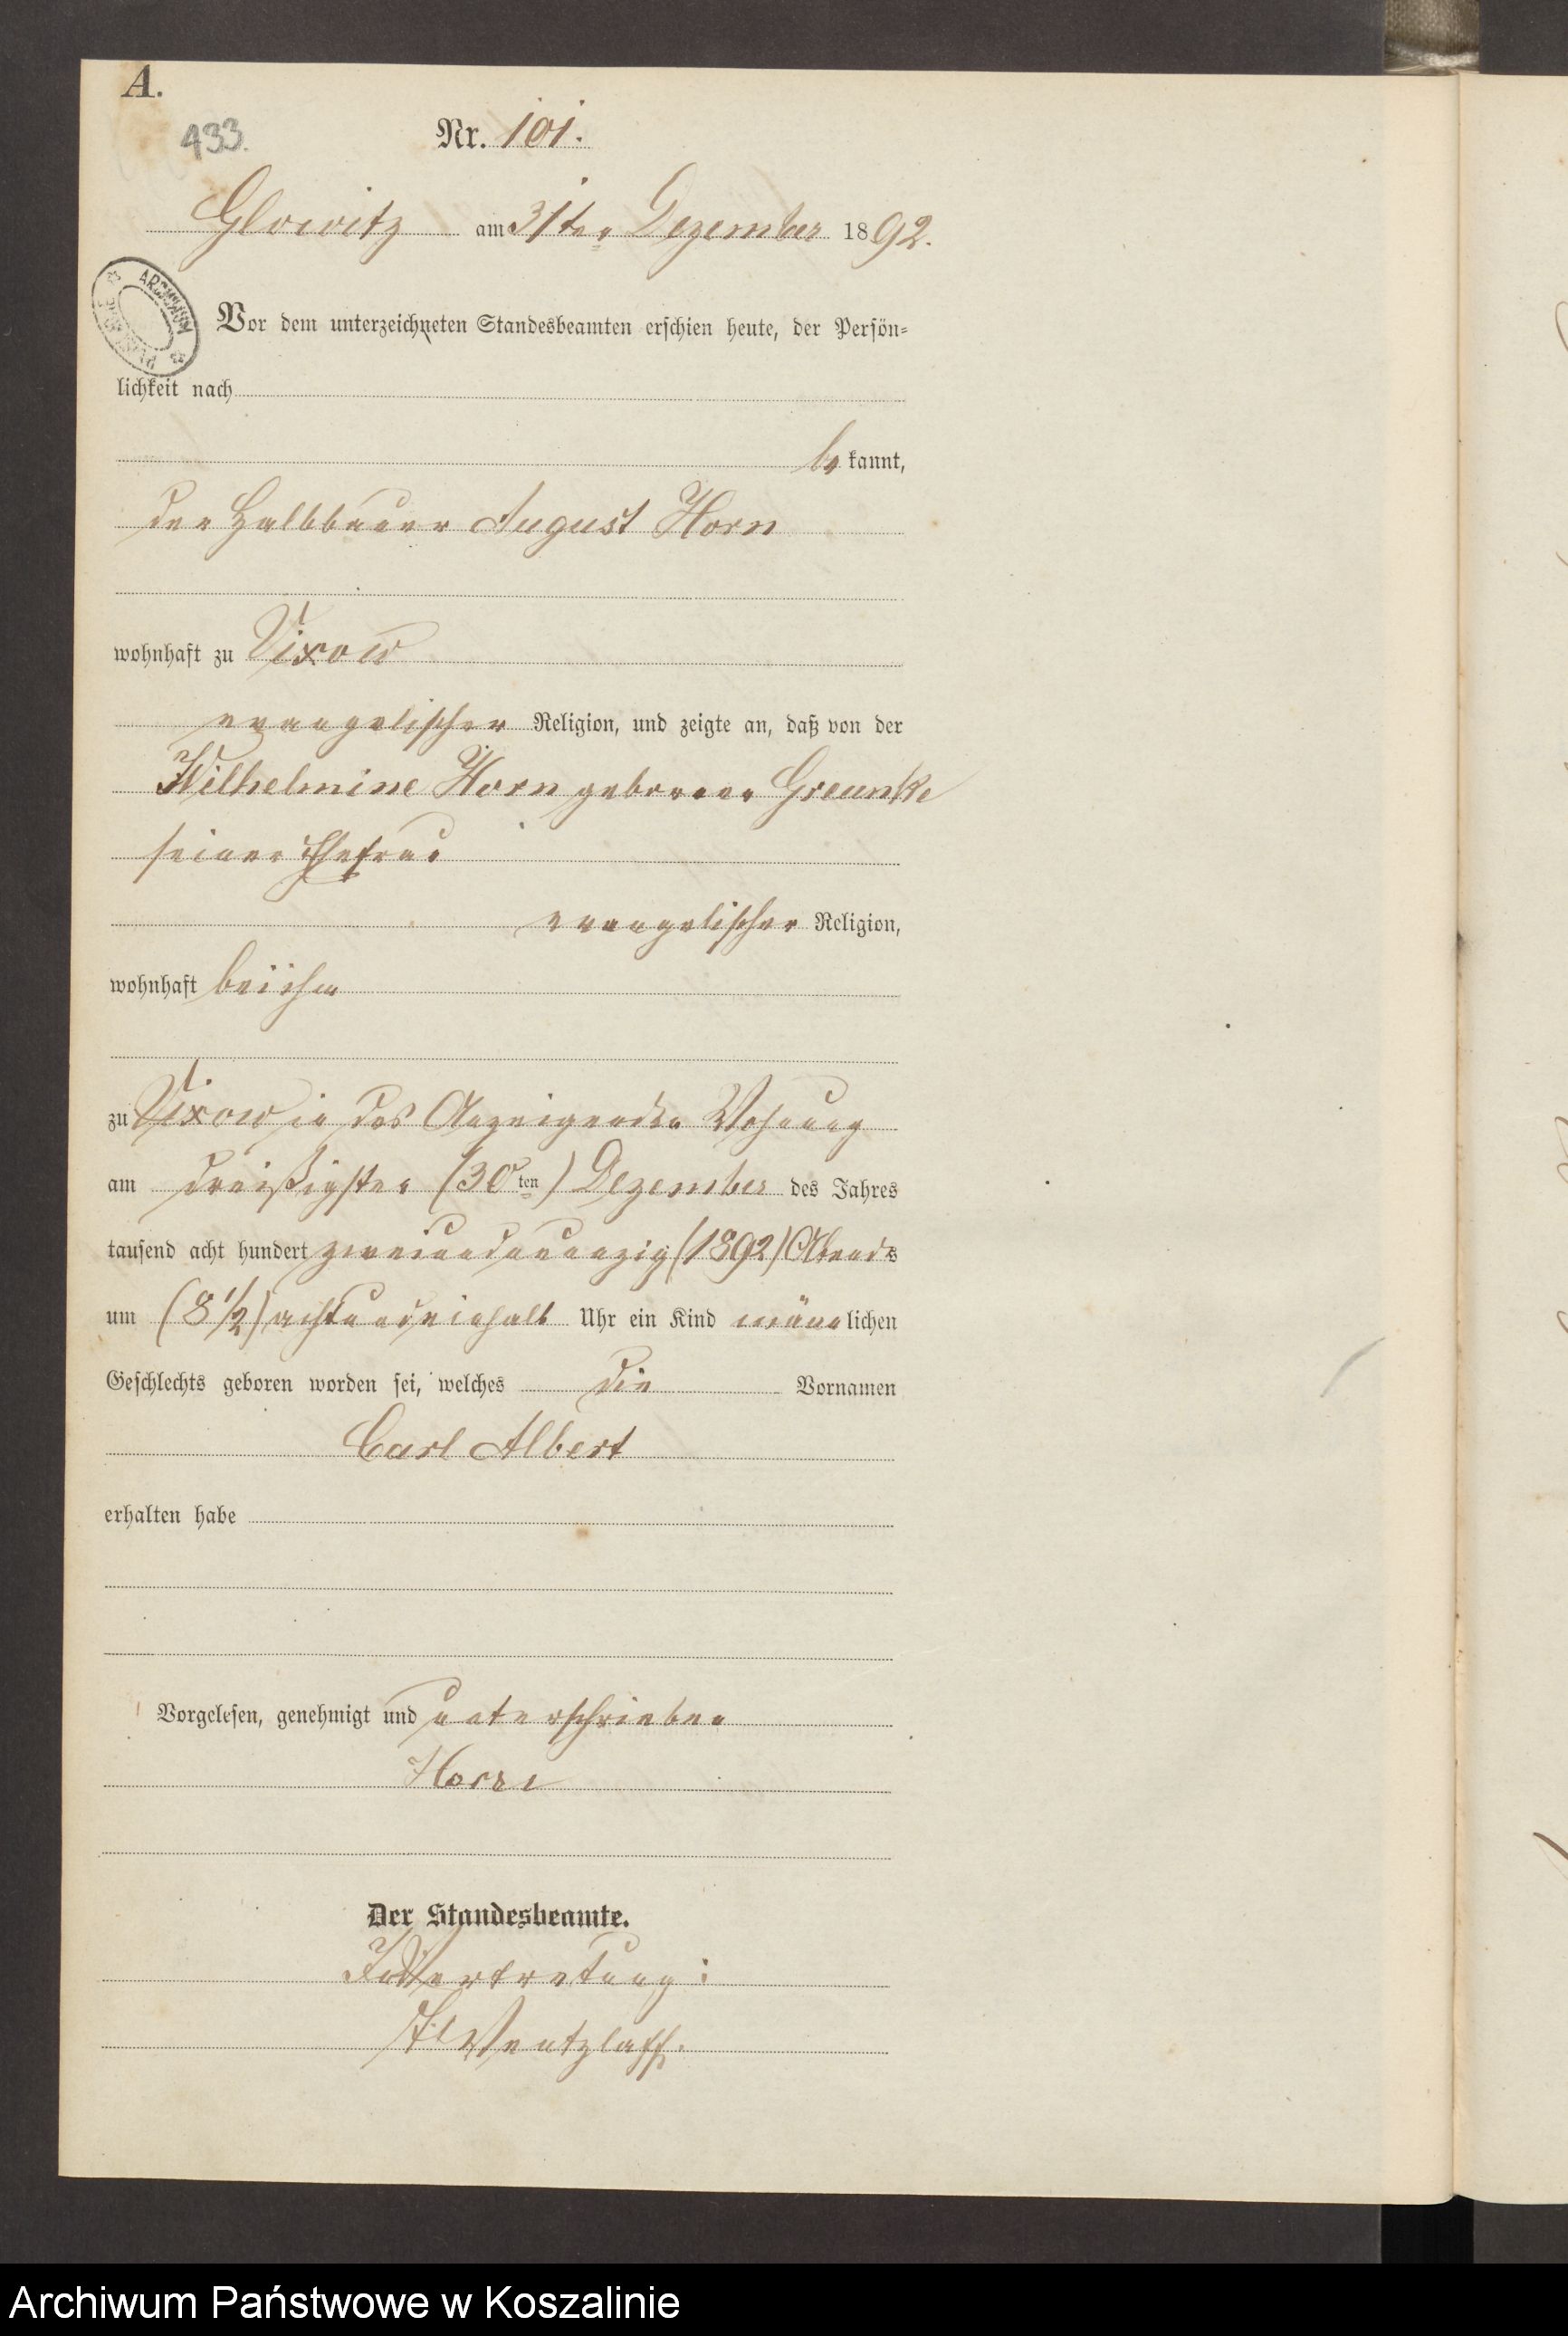 A.
433.
Nr. 101.
Glowitz am 31ten Dezember 1892.
ARCHIWUM
Vor dem unterzeichneten Standesbeamten erschien heute, der Persön=
lichkeit nach
be kannt,
der Halbbauer August Horn
wohnhaft zu Vixow
evangelischer Religion, und zeigte an, daß von der
Wilhelmine Horn geborenen Greunke
seiner Ehefrau
evangelischer Religion,
wohnhaft bei ihm
zu Vixow in des Anzeigenden Wohnung
am dreißigsten (30ten) Dezember des Jahres
tausend acht hundert zweiundneunzig (1892) Abends
um (8 1/2) achtundeinhalb Uhr ein Kind männlichen
Geschlechts geboren worden sei, welches die Vornamen
Carl Albert
erhalten habe
Vorgelesen, genehmigt und unterschrieben
Horn
Der Standesbeamte.
In Vertretung:
Wentzlaff.
Archiwum Państwowe w Koszalinie